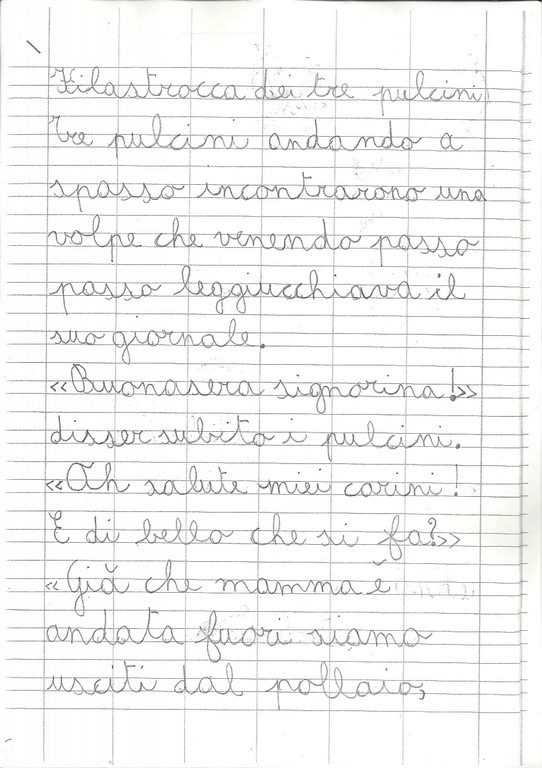 Filastrocca dei tre pulcini
Tre pulcini andando a
spasso incontrarono una
volpe che venendo passo
passo leggiucchiava il
suo giornale.
«Buonasera signorina!»
disser subito i pulcini.
«Oh salute miei carini!
E di bello che si fa?»
«Già che mamma è
andata fuori siamo
usciti dal pollaio,